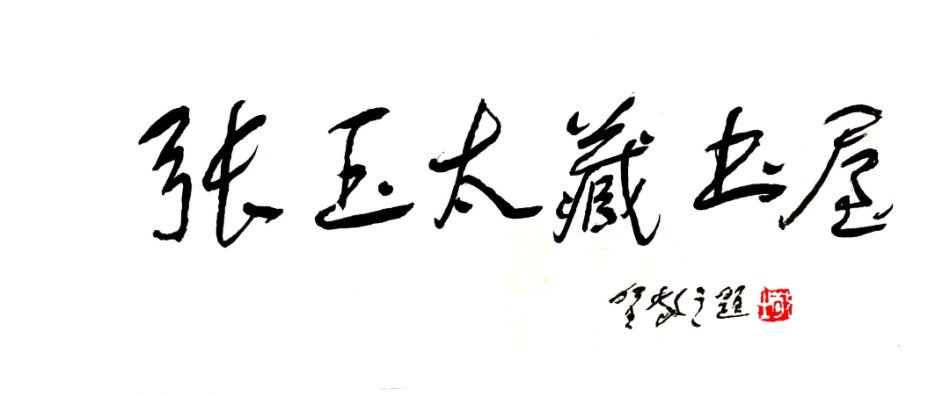 张玉太藏书屋
贺敬之题